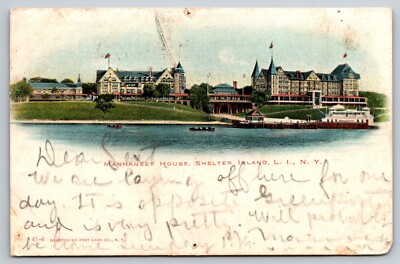 Manhanset House, Shelter Island, L. I., N. Y.
Dear
We are laying off here for one
day. It is opposite Greenport
and is very pretty. Will probably
be home Sunday
41-6 ILLUSTRATED POST CARD CO., N. Y.